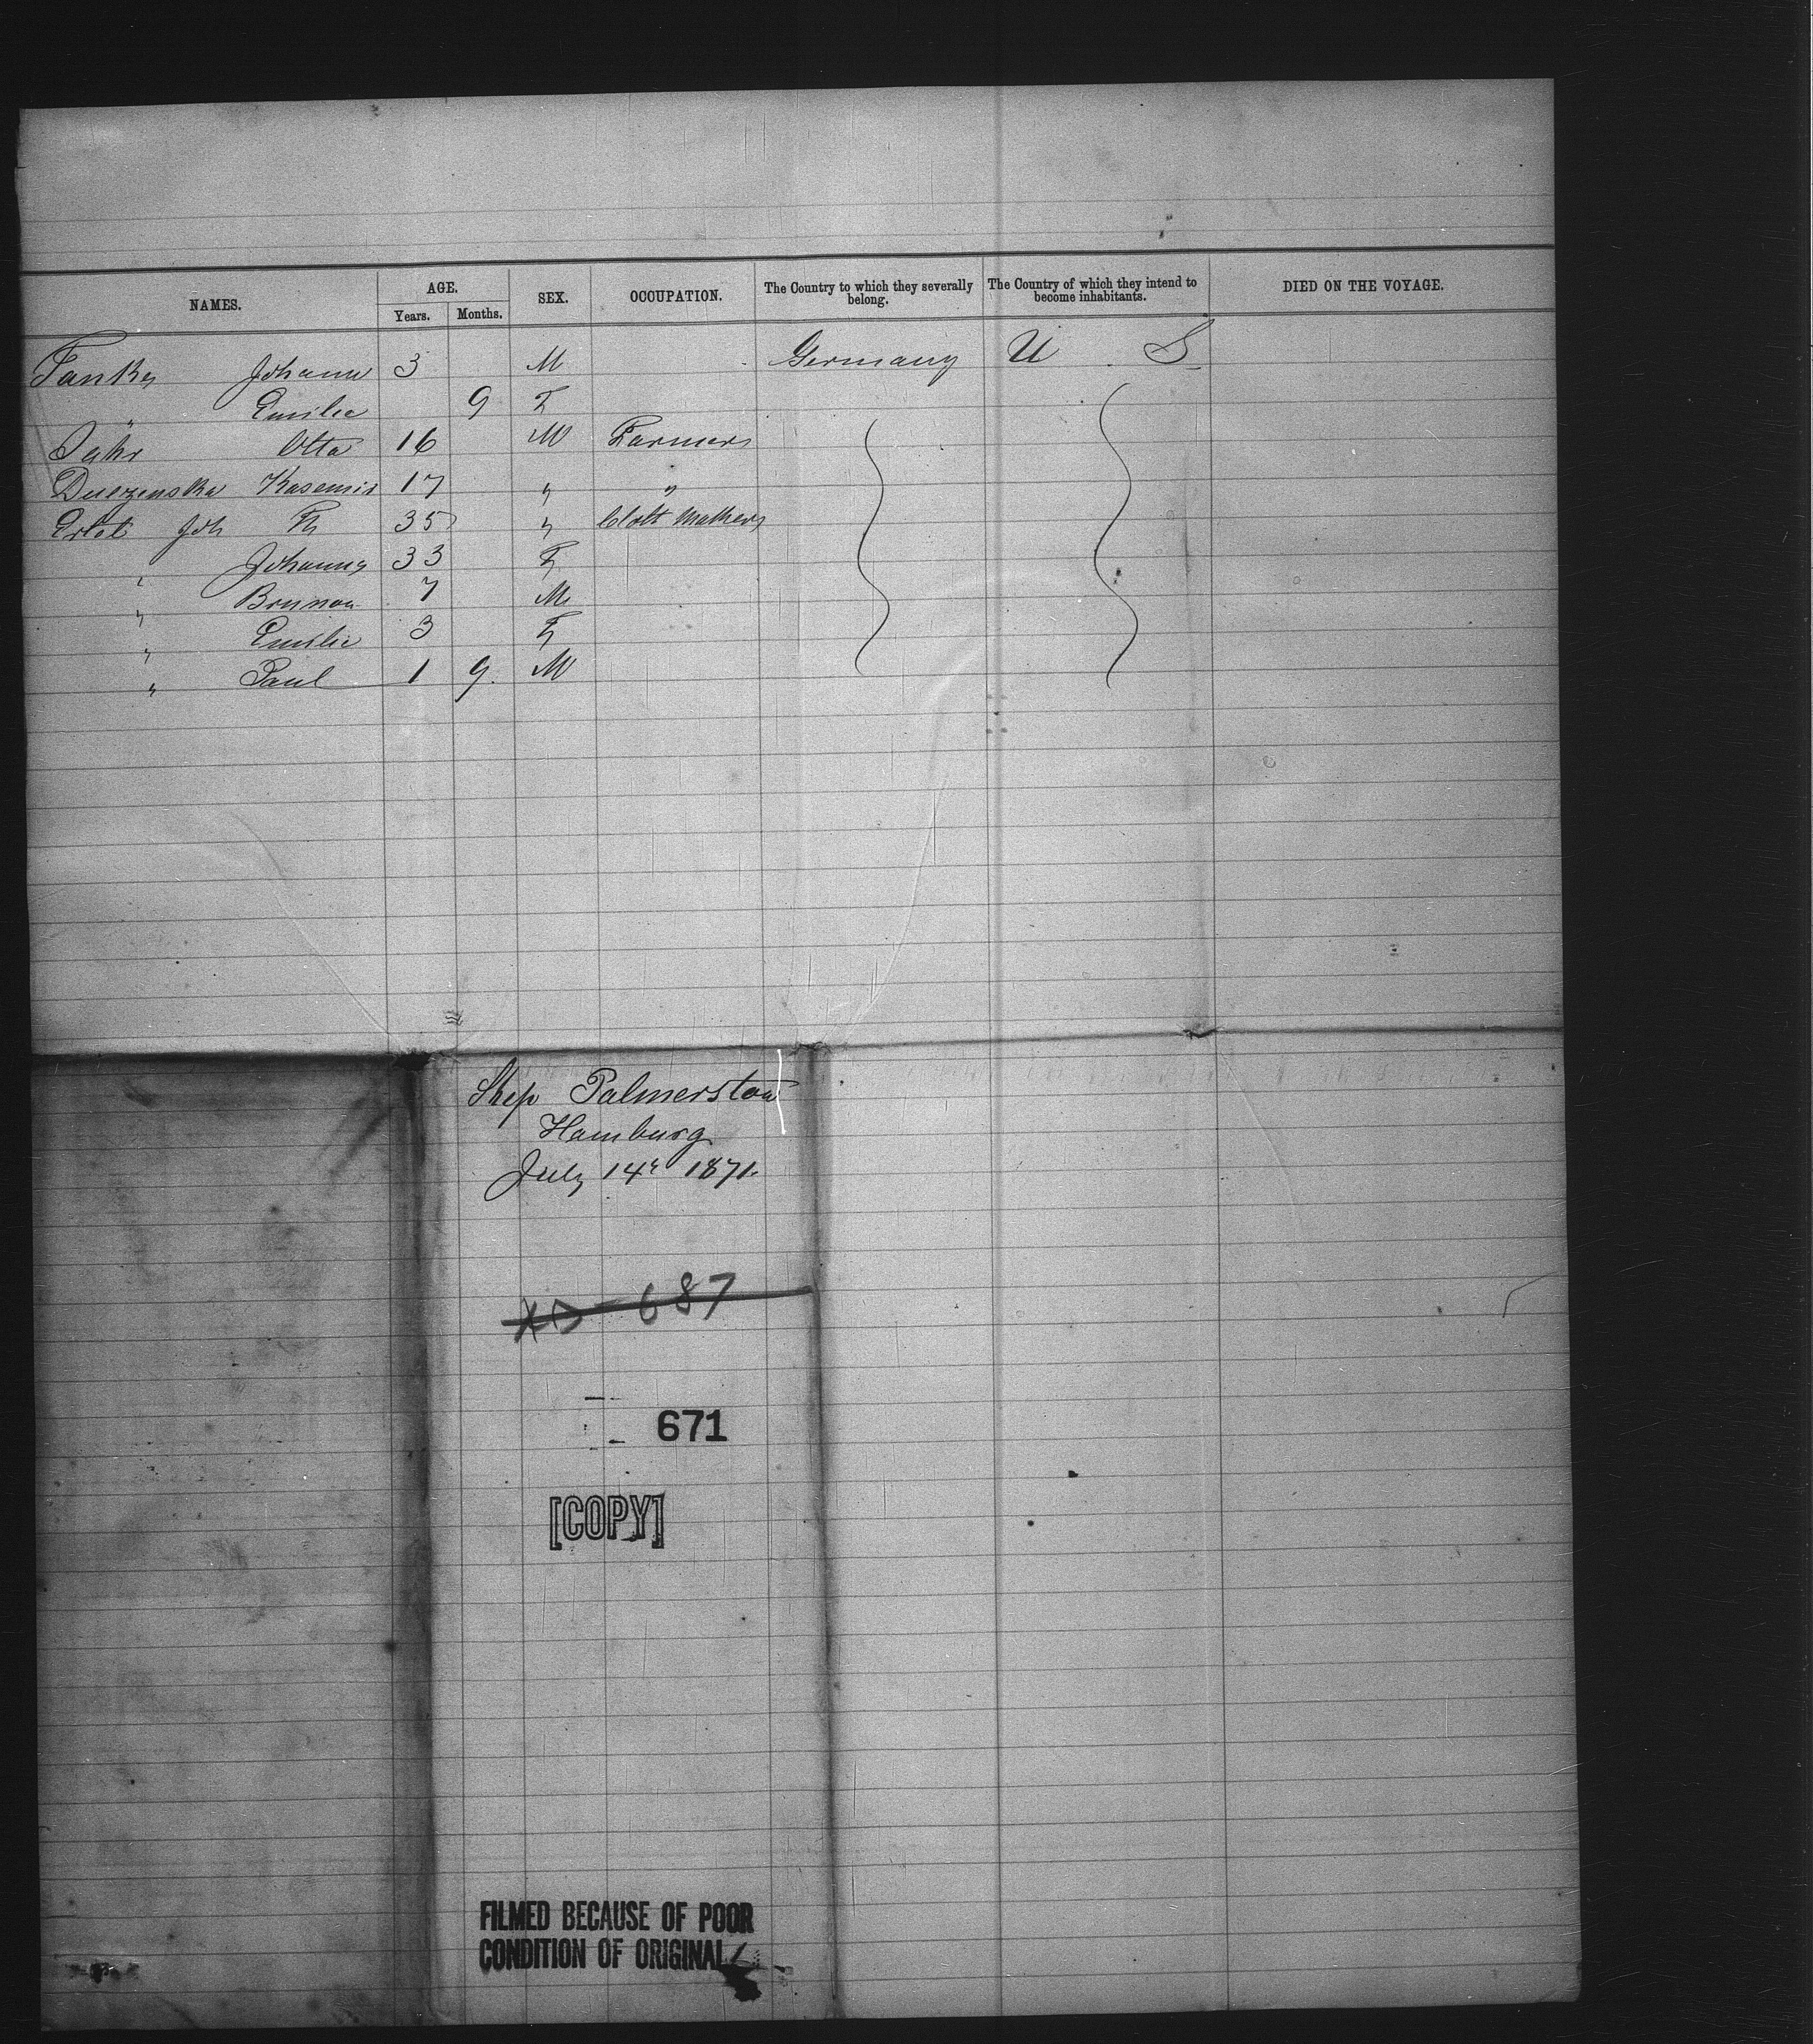 NAMES. AGE. SEX. OCCUPATION. The Country to which they severally belong. The Country of which they intend to become inhabitants. DIED ON THE VOYAGE.
Years. Months.
Johann 3 M Germany U S
" Emilie 9 F
Otto 16 M Farmers
17 " "
Joh 35 "
" Johanna 33 F
" 7 M
" Emilie 3 F
" Paul 1 9. M
Ship Palmerston
Hamburg
July 14th 1871.
687
671
[COPY]
FILMED BECAUSE OF POOR
CONDITION OF ORIGINAL